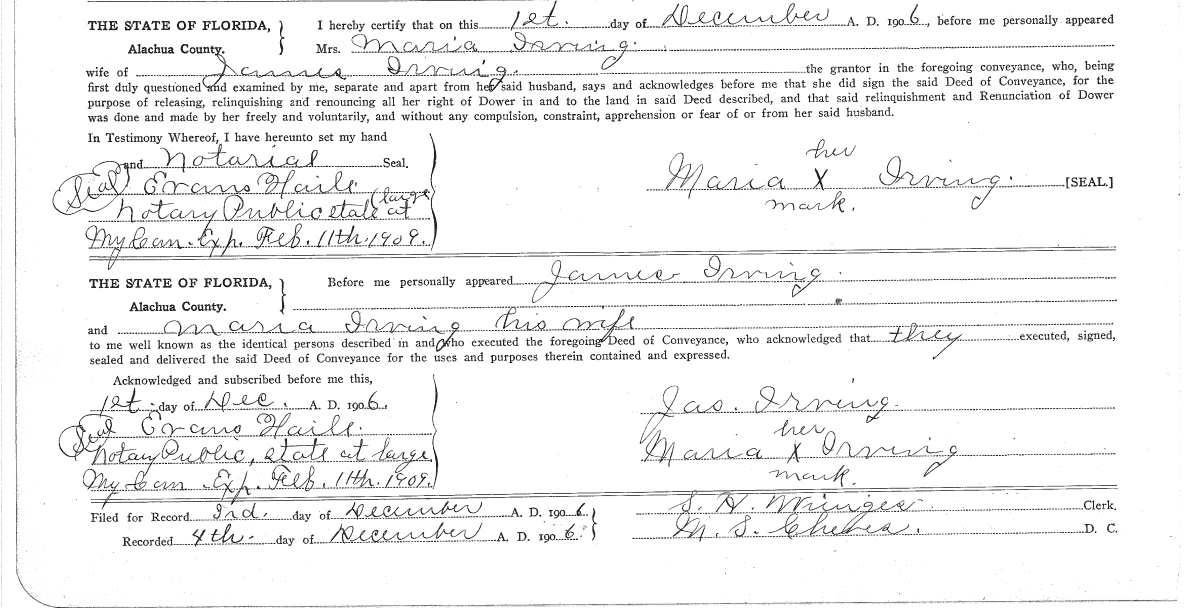 THE STATE OF FLORIDA, } I hereby certify that on this 1st. day of December A. D. 1906, before me personally appeared
Alachua County. Mrs. Maria Irving.
wife of James Irving. the grantor in the foregoing conveyance, who, being
first duly questioned and examined by me, separate and apart from her said husband, says and acknowledges before me that she did sign the said Deed of Conveyance, for the
purpose of releasing, relinquishing and renouncing all her right of Dower in and to the land in said Deed described, and that said relinquishment and Renunciation of Dower
was done and made by her freely and voluntarily, and without any compulsion, constraint, apprehension or fear of or from her said husband.
In Testimony Whereof, I have hereunto set my hand
and Notarial Seal.
(Seal) Evans Haile.
Notary Public state at (large
My Com. Exp. Feb. 11th. 1909.
her
Maria X Irving. [SEAL.]
mark.
THE STATE OF FLORIDA, } Before me personally appeared James Irving.
Alachua County.
and Maria Irving his wife
to me well known as the identical persons described in and who executed the foregoing Deed of Conveyance, who acknowledged that they executed, signed,
sealed and delivered the said Deed of Conveyance for the uses and purposes therein contained and expressed.
Acknowledged and subscribed before me this,
1st. day of Dec. A. D. 1906.
(Seal) Evans Haile.
Notary Public, state at large
My Com. Exp. Feb. 11th. 1909.
Jas. Irving.
her
Maria X Irving
mark.
Filed for Record 3rd. day of December A. D. 1906. } S. H. Clerk.
Recorded 4th. day of December A. D. 1906. M. S. D. C.